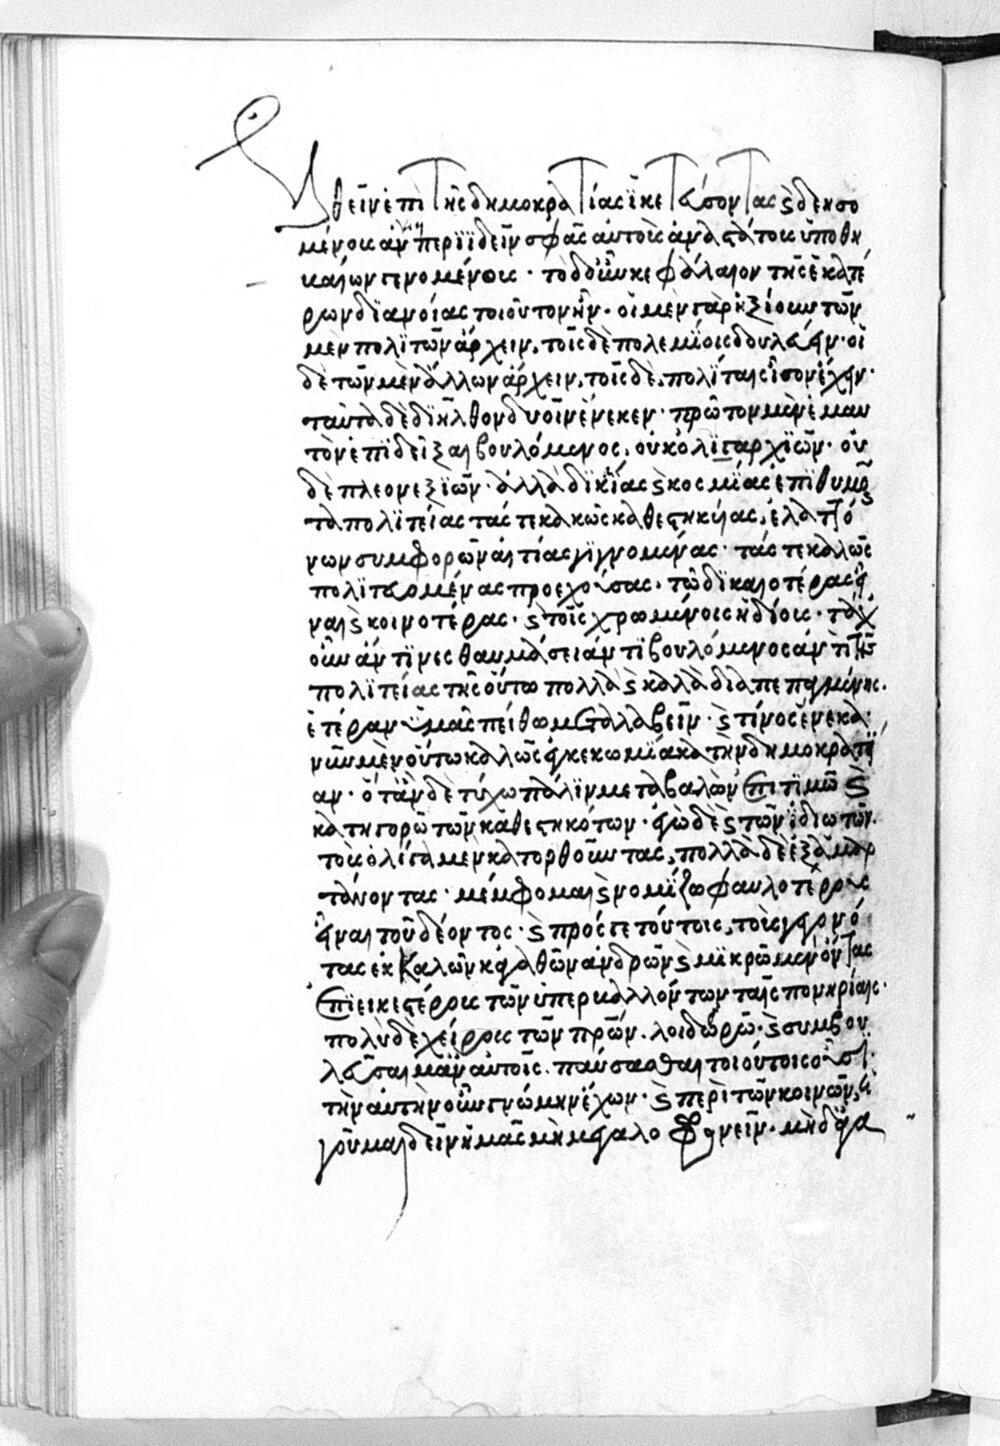 ἐλθεῖν ἐπὶ τῆς δημοκρατίας ἱκετεύσοντας καὶ δεησο
μένους αὐτῶν μὴ περιϊδεῖν σφᾶς αὐτοὺς ἀναστάτους ὑπὸ θη
βαίων γενομένους · τὸ δ' οὖν κεφάλαιον τῆς ἑκατέ
ρων διανοίας τοιοῦτον ἦν · οἱ μὲν γὰρ ἠξίουν τῶν
μὲν πολιτῶν ἄρχειν, τοῖς δὲ πολεμίοις δουλεύειν · οἱ
δὲ τῶν μὲν ἄλλων ἄρχειν, τοῖς δὲ πολίταις ἴσον ἔχειν ·
ταῦτα δὲ διῆλθον δυοῖν ἕνεκεν · πρῶτον μὲν ἐμαυ
τὸν ἐπιδεῖξαι βουλόμενος, οὐκ ὀλιγαρχιῶν · οὐ
δὲ πλεονεξιῶν · ἀλλὰ δικαίας καὶ κοσμίας ἐπιθυμοῦν
τα πολιτείας τάς τε κακῶς καθεστηκυίας, ἐλαττό
νων συμφορῶν αἰτίας γιγνομένας · τάς τε καλῶς
πολιτευομένας προεχούσας · τῷ δικαιοτέρας εἶ
ναι καὶ κοινοτέρας · καὶ τοῖς χρωμένοις ἡδίους · τάχ'
οὖν ἄν τινες θαυμάσειαν τί βουλόμενος ἀντὶ τῆς
πολιτείας τῆς οὕτω πολλὰ καὶ καλὰ διαπεπραγμένης ·
ἑτέραν ὑμᾶς πείθω μεταλαβεῖν · καὶ τίνος ἕνεκα
νῦν μὲν οὕτω καλῶς ἐγκεκωμίακα τὴν δημοκρατί
αν · ὅταν δὲ τύχω πάλιν μεταβαλὼν ἐπιτιμῶ καὶ
κατηγορῶ τῶν καθεστηκότων · ἐγὼ δὲ καὶ τῶν ἰδιωτῶν
τοὺς ὀλίγα μὲν κατορθοῦντας, πολλὰ δὲ ἐξαμαρ
τάνοντας · μέμφομαι καὶ νομίζω φαυλοτέρους
εἶναι τοῦ δέοντος · καὶ πρός γε τούτοις, τοὺς γεγονό
τας ἐκ καλῶν κἀγαθῶν ἀνδρῶν καὶ μικρῷ μὲν ὄντας
ἐπιεικεστέρους τῶν ὑπερβαλλόντων ταῖς πονηρίαις ·
πολὺ δὲ χείρους τῶν πατέρων · λοιδορῶ · καὶ συμβου
λεύσαιμ' ἂν αὐτοῖς · παύσασθαι τοιούτοις οὖσι ·
τὴν αὐτὴν οὖν γνώμην ἔχων · καὶ περὶ τῶν κοινῶν, ἡ
γοῦμαι δεῖν ἡμᾶς μὴ μεγαλοφρονεῖν · μηδ' ἀγα